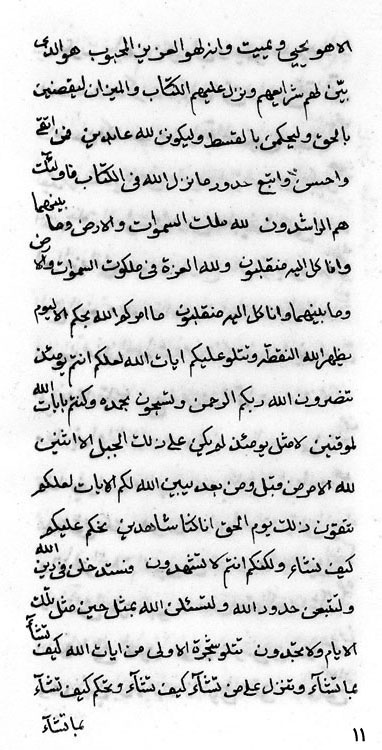 الا هو يحيي ويميت وانه لهو العزيز المحبوب هو الذي
بين لهم شرايعهم ونزل عليهم الكتاب والميزان ليقضين
بالحق وليحكمن بالقسط وليكون لله عابدين فمن اتقى
واحسن واتبع حدود ما نزل الله في الكتاب فاولئك
هم الراشدون لله ملك السموات والارض وما بينهما
وانا كل اليه منقلبون ولله العزة في ملكوت السموات والارض
وما بينهما وانا كل اليه منقلبون ما امركم الله بكم الا ليوم
يظهر الله النقطة ونتلو عليكم ايات الله لعلكم انتم يومئذ
تنصرون الله ربكم الرحمن ولتسبحون بحمده وكنتم بايات الله
لموقنين لا مثل يومئذ لم يكن على ذلك الجبل الا اثنين
لله الامر من قبل ومن بعد يبين الله لكم الايات لعلكم
تتقون ذلك يوم الحق انا كنا شاهدين نحكم عليكم
كيف نشاء ولكنكم انتم لا تشهدون فستدخلن في دين الله
ولتتبعن حدود الله ولتسئلن الله بمثل حين مثل تلك
الايام ولا تجدون تتلو شجرة الاولى من ايات الله كيف تشاء
بما تشاء وتنزل على من تشاء كيف تشاء وتحكم كيف تشاء
بما تشاء
١١